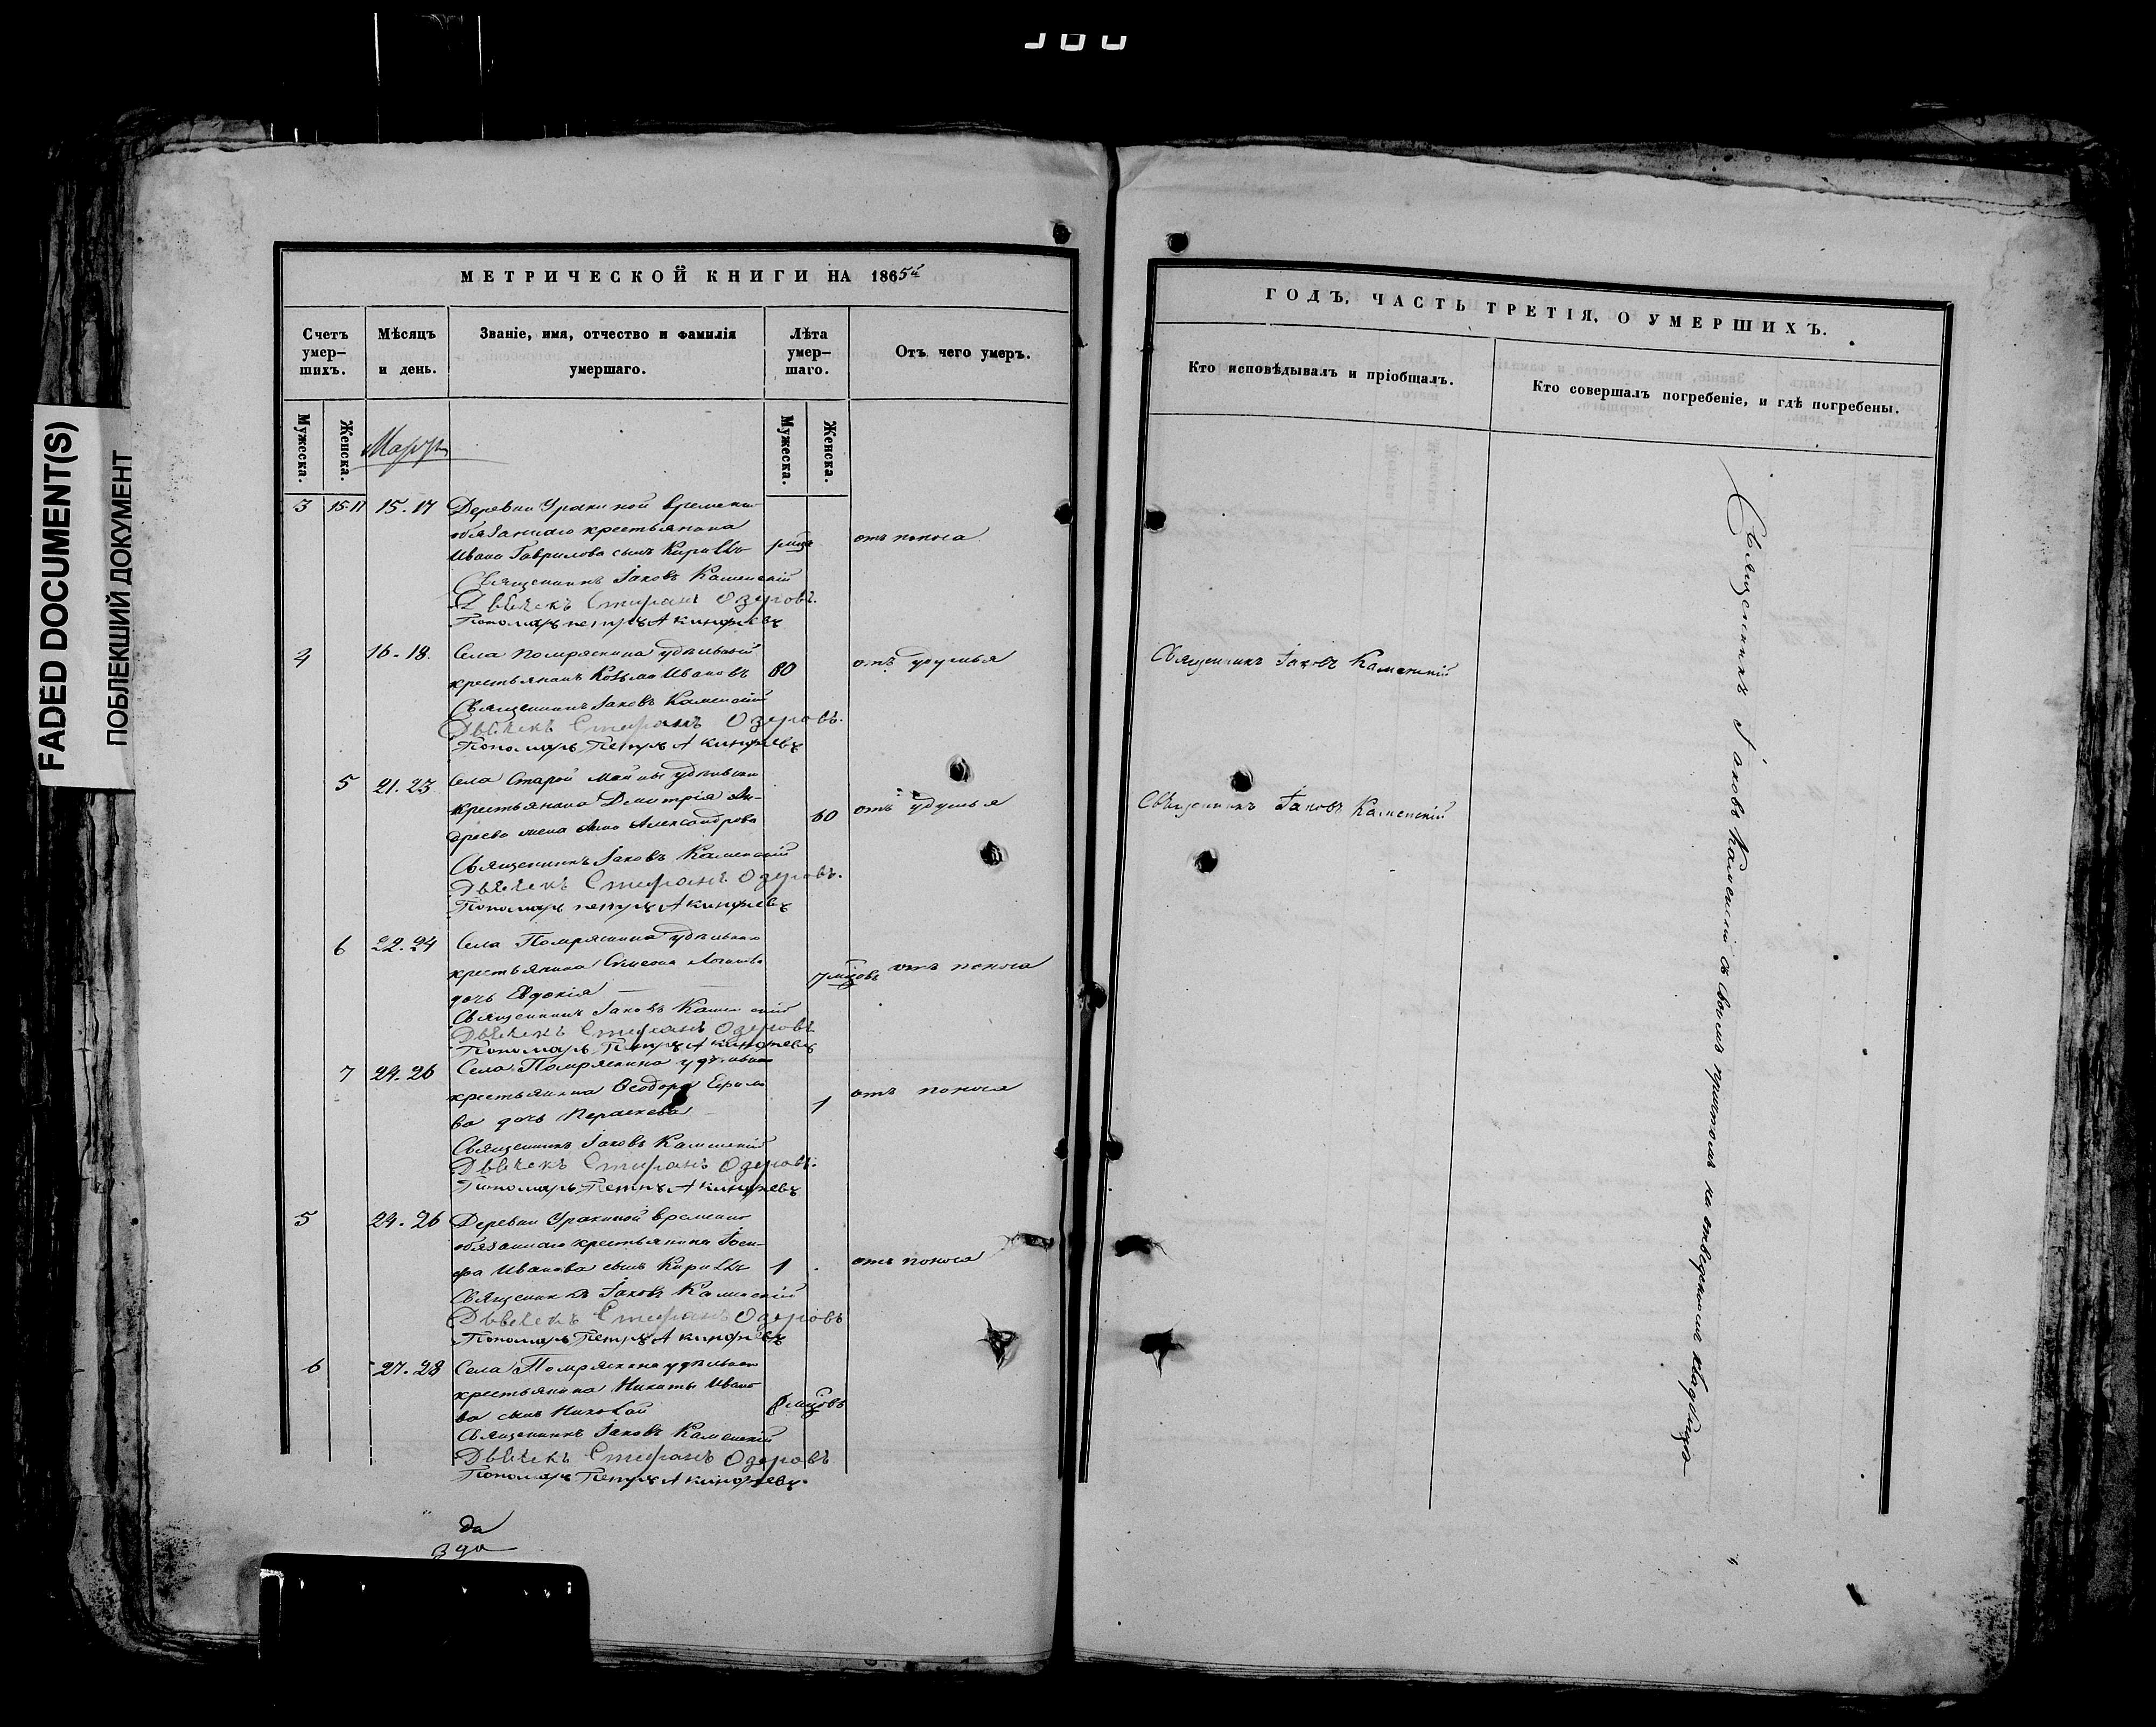 FADED DOCUMENT(S)
ПОБЛЕКШИЙ ДОКУМЕНТ
МЕТРИЧЕСКОЙ КНИГИ НА 1865й
Счетъ умер–шихъ.
Мѣсяцъ и день.
Званіе, имя, отчество и фамилія умершаго.
Лѣта умер–шаго.
Отъ чего умеръ.
Мужеска.
Женска.
Мужеска.
Женска.
Мартъ
3 15.17 Деревни Уракиной временно
обязаннаго крестьянина
Ивана Гаврилова сынъ Кириллъ
отъ поноса
Священникъ Іаковъ Каменскій
Дьячекъ Стефанъ Озеровъ.
Пономарь Петръ Акинфіевъ
4 16.18. Села Помряскина удѣльный
крестьянинъ Козьма Ивановъ 80 отъ удушья
Священникъ Іаковъ Каменскій
Дьячекъ Стефанъ Озеровъ.
Пономарь Петръ Акинфіевъ
5 21.23 Села Старой Майны удѣльнаго
крестьянина Димитрія Ан-
дреева жена Анна Александрова 60 отъ удушья
Священникъ Іаковъ Каменскій
Дьячекъ Стефанъ Озеровъ.
Пономарь Петръ Акинфіевъ
6 22.24 Села Помряскина удѣльнаго
крестьянина Симеона
дочь Евдокія 7 мцовъ отъ поноса
Священникъ Іаковъ Каменскій
Дьячекъ Стефанъ Озеровъ
Пономарь Петръ Акинфіевъ
7 24.26 Села Помряскина удѣльнаго
крестьянина Ѳеодора Ефимо
ва дочь Параскева 1 отъ поноса
Священникъ Іаковъ Каменскій
Дьячекъ Стефанъ Озеровъ.
Пономарь Петръ Акинфіевъ
5 24.26 Деревни Уракиной временно
обязаннаго крестьянина Іоси-
фа Иванова сынъ Кириллъ 1 отъ поноса
Священникъ Іаковъ Каменскій
Дьячекъ Стефанъ Озеровъ
Пономарь Петръ Акинфіевъ
6 27.28 Села Помряскина удѣльнаго
крестьянина Никиты Ивано
ва сынъ Николай мцовъ
Священникъ Іаковъ Каменскій
Дьячекъ Стефанъ Озеровъ
Пономарь Петръ Акинфіевъ.
ГОДЪ, ЧАСТЬ ТРЕТІЯ, О УМЕРШИХЪ.
Кто исповѣдывалъ и пріобщалъ.
Кто совершалъ погребеніе, и гдѣ погребены.
Священникъ Іаковъ Каменскій
Священникъ Іаковъ Каменскій
Священникъ Іаковъ Каменскій съ своимъ причтомъ на отведенномъ кладбищѣ